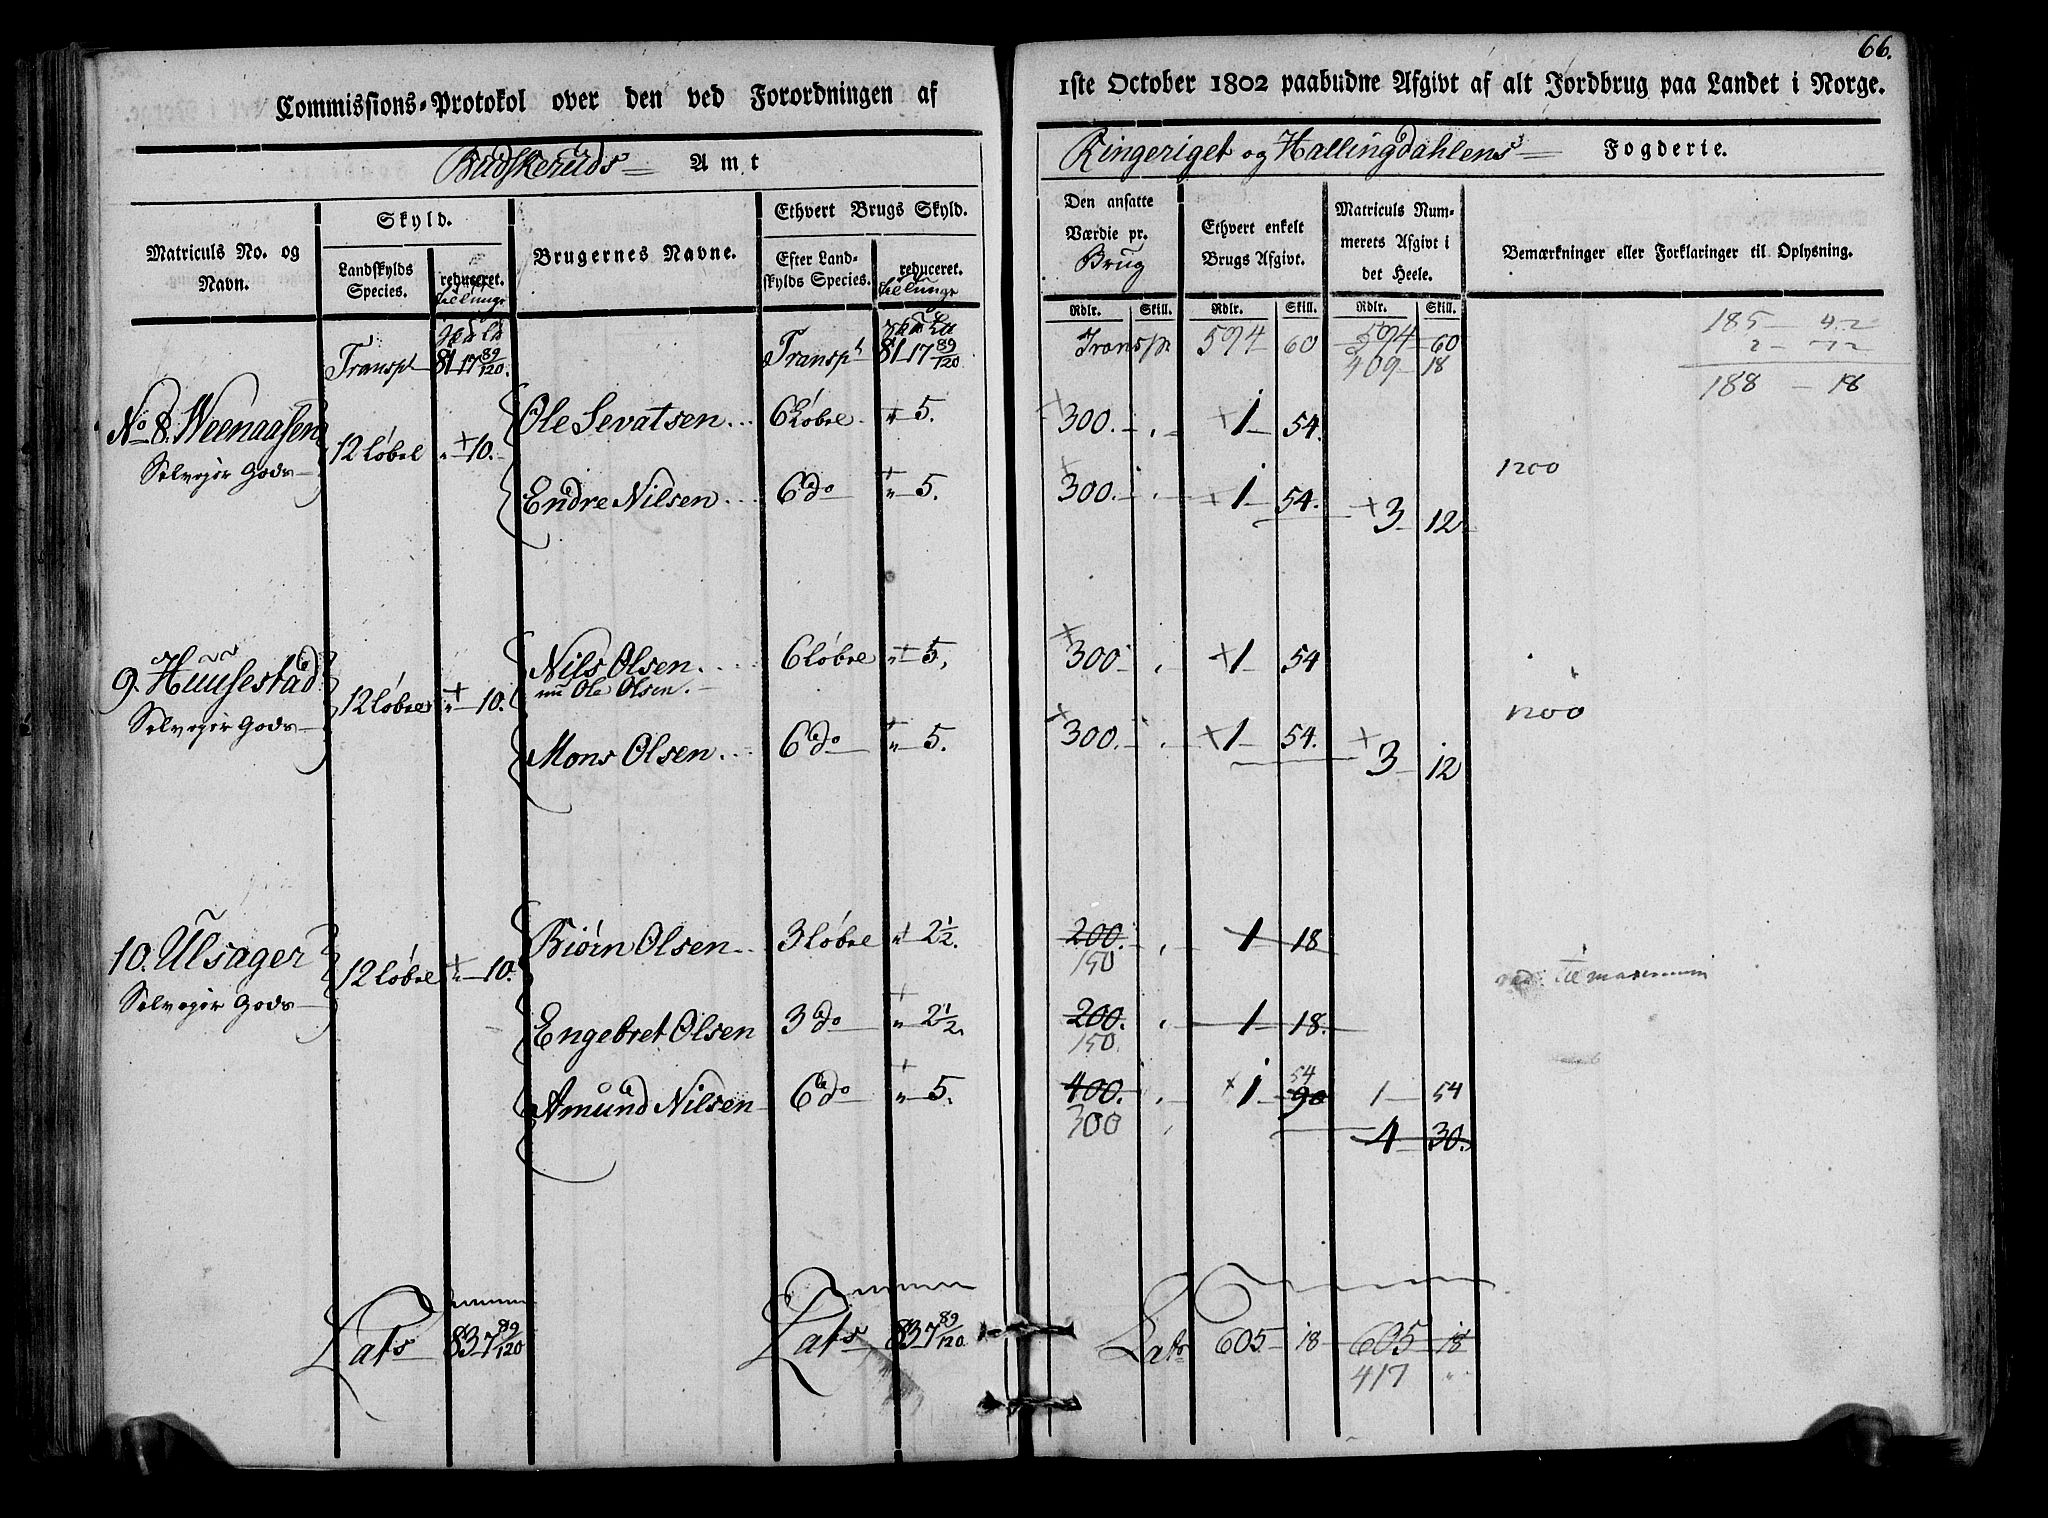 66.
Commissions-Protokol over den ved Forordningen af
1ste October 1802 paabudne Afgivt af alt Jordbrug paa Landet i Norge.
Budskeruds Amt
Ringeriget og Hallingdahlens Fogderie.
Matriculs No. og Navn.
Skyld.
Landskylds Species.
reduceret. til Tunge
Brugernes Navne.
Ethvert Brugs Skyld.
Efter Landskylds Species.
reduceret. til Tunge
Den ansatte Værdie pr. Brug
Ethvert enkelt Brugs Afgivt.
Matriculs Nummerets Afgivt i det Heele.
Bemærkninger eller Forklaringer til Oplysning.
Rdlr. Skill. Rdlr. Skill. Rdlr. Skill.
Transpt 81 17 89/120. Transpt 81 17 89/120 Transpt 594 60 594 60
409 18
185 42
188 18
No 8. Weenaasen 12 løbel 10. Ole Sevatsen 6 Løbel 5. 300. 1 54.
Selveyer Gods
1200
Endre Nilsen 6 do 5. 300. 1 54. 3 12
9. Huusestad 12 løbel 10. Nils Olsen 6 løbel 5. 300 1 54
nu Ole Olsen.
Selveyer Gods
1200
Mons Olsen 6 do 5. 300. 1 54. 3 12
10. Ulsager 12 løbel 10. Biørn Olsen 3 løbel 2 1/2. 200. 1 18
150
Selveyer Gods
til maximum
Engebret Olsen 3 do 2 1/2. 200. 1 18.
150
Amund Nilsen 6 do 5. 400. 1 90 54 1 54
300
4 30.
Lats 83 7 89/120 Lats 83 7 89/120. Lats 605 18 605 18
417